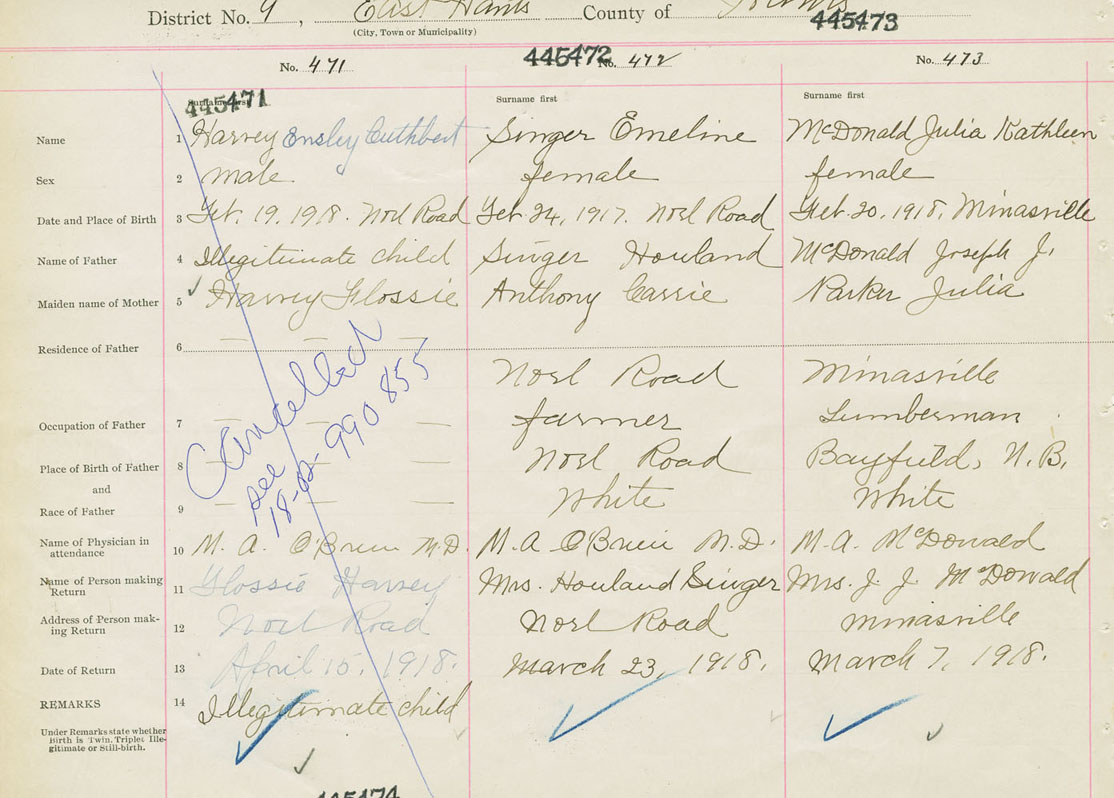 District No. 9, East Hants County of Hants
(City, Town or Municipality)
445473
445472
No. 471 No. 472 No. 473
445471
Surname first Surname first Surname first
Name 1 Harvey Ensley Cuthbert Singer Emeline McDonald Julia Kathleen
Sex 2 male. female female
Date and Place of Birth 3 Feb. 19, 1918. Noel Road Feb. 24, 1917. Noel Road Feb. 20, 1918, Minasville
Name of Father 4 Illegitimate child Singer Houland McDonald Joseph J.
Maiden name of Mother 5 Harvey Flossie Anthony Carrie Parker Julia
Residence of Father 6
Noel Road Minasville
Occupation of Father 7 farmer Lumberman
Place of Birth of Father 8 Noel Road Bayfield, N.B.
and
Race of Father 9 White White
Cancelled
see
18-02-990855
Name of Physician in
attendance 10 M. A. O'Brien M.D. M. A O'Brien M.D. M. A. McDonald
Name of Person making
Return 11 Flossie Harvey Mrs. Houland Singer Mrs. J. J. McDonald
Address of Person mak-
ing Return 12 Noel Road Noel Road Minasville
Date of Return 13 April 15, 1918. March 23, 1918. March 7, 1918.
REMARKS 14 Illegitimate child
Under Remarks state whether
Birth is Twin, Triplet Ille-
gitimate or Still-birth.
445474